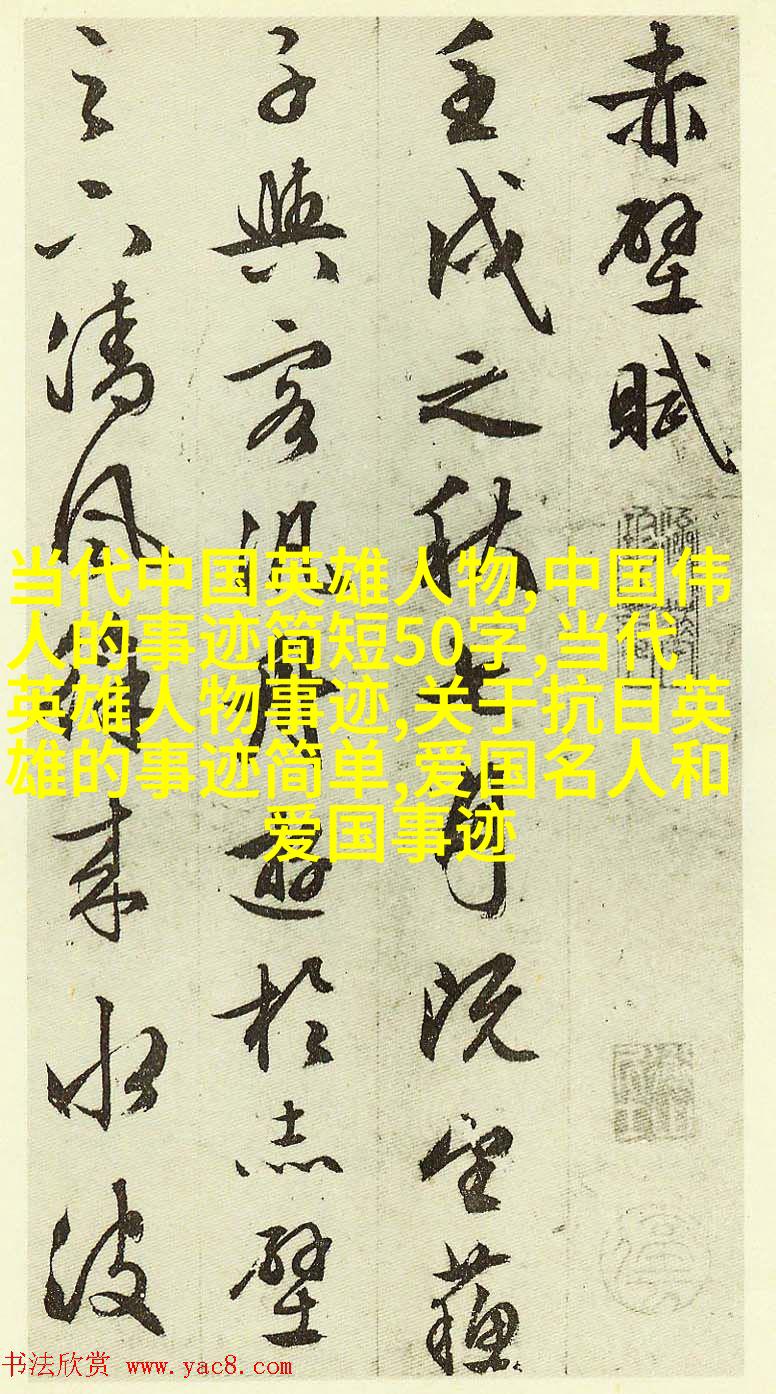 赤壁賦
壬戌之秋七月既望蘇
子與客泛舟遊於赤壁
之下清風徐來水波
当代中国英雄人物,中国伟
人的事迹简短50字,当代
英雄人物事迹,关于抗日英
雄的事迹简单,爱国名人和
爱国事迹
书法欣赏 www.yac8.com